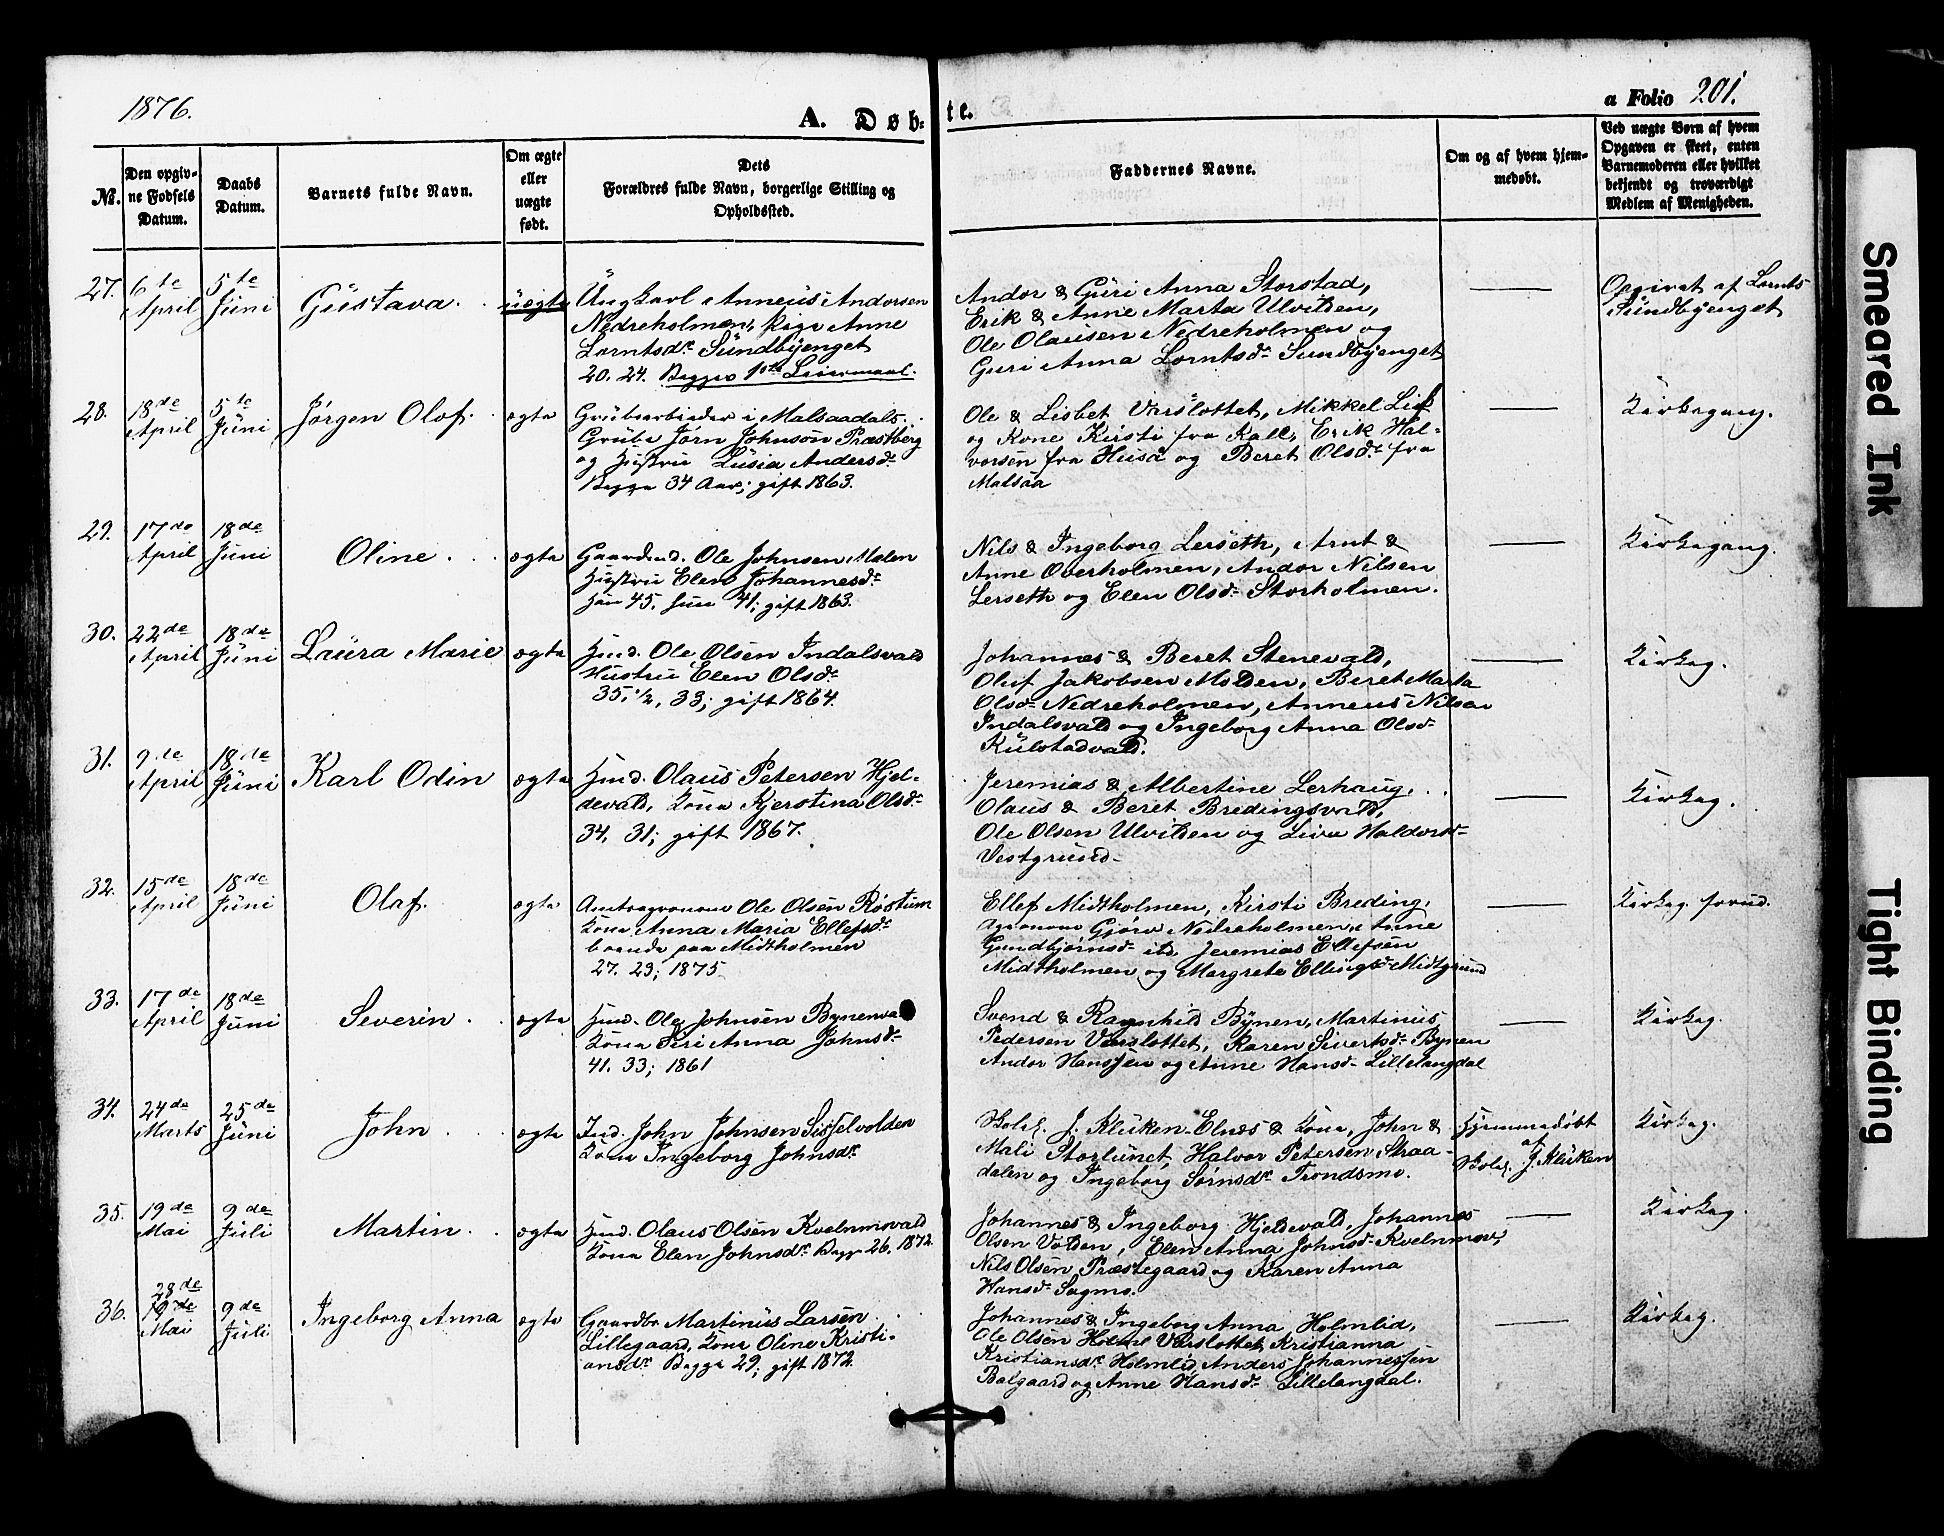 1876.
A. Døb-
te.
a Folio 201.
No.
Den opgiv-
ne Fødsels
Datum.
Daabs
Datum.
Barnets fulde Navn.
Om ægte
eller
uægte
født.
Dets
Forældres fulde Navn, borgerlige Stilling og
Opholdssted.
Faddernes Navne.
Om og af hvem hjem-
medøbt.
Ved uægte Børn af hvem
Opgaven er skeet, enten
Barnemoderen eller hvilket
bekjendt og troværdigt
Medlem af Menigheden.
27.
6te
April
5te
Juni
Gustava.
uægte
Ungkarl Anneus Andorsen
Nedreholmen, Pige Anne
Lorntsdr Sundbyenget
20. 24. Begges 1ste Leiermaal.
Andor & Guri Anna Storstad,
Erik & Anne Marta Ulvilden,
Ole Olausen Nedreholmen og
Guri Anna Lorntsdr Sundbyenget
Opgivet af Lornts
Sundbyenget
28.
18de
April
5te
Juni
Jørgen Olof.
ægte
Grubearbeider i Malsaadals
Grube Jørn Johnson Præstberg
og Hustru Lusia Andersdr
Begge 34 Aar; gift 1863.
Ole & Lisbet Værslottet, Mikkel Lif
og Kone Kirsti fra Kall, Erik Hal-
vorsen fra Huså og Beret Olsdr fra
Malsaa
Kirkegang.
29.
17de
April
18de
Juni
Oline.
ægte
Gaardmd. Ole Johnsen Molen
Hustru Elen Johannesdr
Han 45, hun 41; gift 1863.
Nils & Ingeborg Lerseth, Arnt &
Anne Overholmen, Andor Nilsen
Lerseth og Elen Olsdr Storholmen.
Kirkegang.
30.
22de
April
18de
Juni
Laura Marie
ægte
Hmd. Ole Olsen Indalsvald
Hustru Elen Olsdr
35 1/2, 33; gift 1864.
Johannes & Beret Stenevald,
Oluf Jakobsen Molden, Beret Marta
Olsdr Nedreholmen, Anneus Nilsen
Indalsvald og Ingeborg Anna Olsdr
Kulstadvald.
Kirkeg.
31.
9de
April
18de
Juni
Karl Odin
ægte
Hmd. Olaus Petersen Hjel-
devald, Kona Kjerstina Olsdr
34, 31; gift 1867.
Jeremias & Albertine Lerhaug,
Olaus & Beret Bredingsvald,
Ole Olsen Ulvilden og Liva Haldorsdr
Vestgrund
Kirkeg.
32.
15de
April
18de
Juni
Olaf.
ægte
Amtsagronom Ole Olsen Røstum
Kona Anna Maria Ellefsdr
boende paa Midtholmen
27. 23; 1875
Ellef Midtholmen, Kirsti Breding,
Agronom Gjørv Nedreholmen, Anne
Gundbjørnsdr ibd Jeremias Ellefsen
Midtholmen og Margrete Ellingsdr Midtgrund
Kirkeg. forud.
33.
17de
April
18de
Juni
Severin.
ægte
Hmd. Ole Johnsen Bynenvald
Kona Siri Anna Johnsdr
41. 33; 1861
Svend & Ragnhild Bynen, Martinus
Pedersen Værslottet, Karen Sivertsdr Bynen
Andor Hanssen og Anne Hansdr Lillelangdal
Kirkeg.
34.
24de
Marts
25de
Juni
John
ægte
Ind. John Johnsen Sisselvolden
Kona Ingeborg Johnsdr
Skolel. J. Kluken Elnes & Kona, John &
Mali Storlunet, Halvor Petersen Straa-
dalen og Ingeborg Sørnsdr Trondsmo.
Hjemmedøbt
af
Skolel. J. Kluken
Kirkeg.
35.
19de
Mai
9de
Juli
Martin.
ægte
Hmd. Olaus Olsen Kvelnmovald
Kona Elen Johnsdr Begge 26. 1872.
Johannes & Ingeborg Hjeldevald, Johannes
Olsen Volden, Elen Anna Johnsdr Kvelnmov,
Nils Olsen Præstegaard og Karen Anna
Hansdr Sagmo.
Kirkeg.
36.
28de
19de
Mai
9de
Juli
Ingeborg Anna
ægte
Gaardbr Martinus Larsen
Lillegaard, Kona Oline Kristi-
ansdr Begge 29; gift 1872.
Johannes & Ingeborg Anna Holmlid,
Ole Olsen Holml Værslottet, Kristianna
Kristiansdr Holmlid, Anders Johannessen
Balgaard og Anne Hansdr Lillelangdal.
Kirkeg.
Smeared Ink
Tight Binding